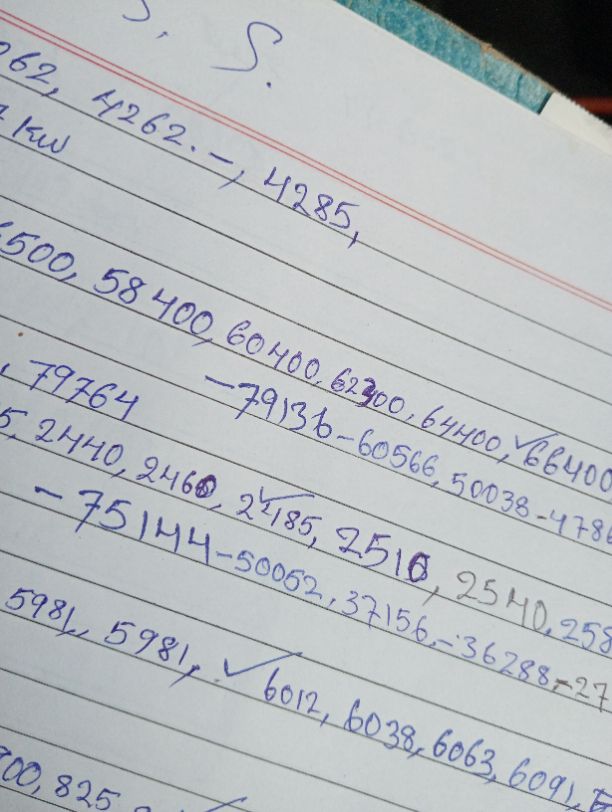 S. S.
062, 4262.-, 4285,
KW
6500, 58400, 60400, 62300, 64400, ✓66400
, 79764 -79136-60566, 50038-4786
5, 2440, 2460, 2485, 2510, 2540, 258
-75144-50052, 37156,-36288,-27
5981, 5981, ✓6012, 6038, 6063, 6091,
00, 825